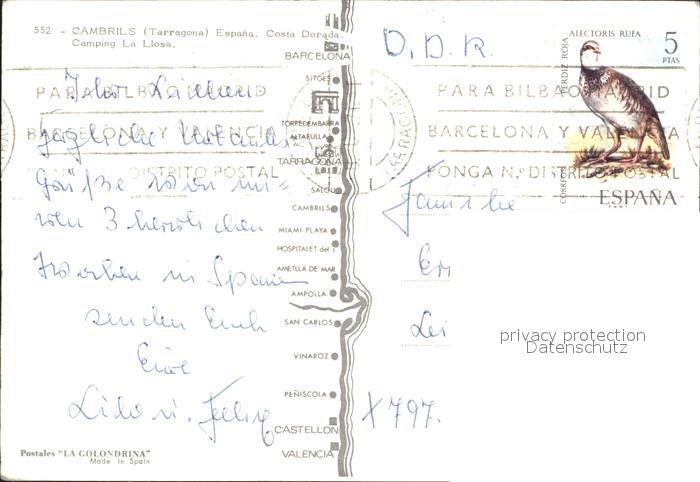 552 - CAMBRILS (Tarragona) España. Costa Dorada.
Camping La Llosa.
Ihr Lieben
herzliche Urlaubs-
Grüße von un-
3 herrlichen
Wochen in Spanien
senden Euch
Eure
Postales "LA GOLONDRINA"
Made in Spain
BARCELONA
SITGES
TORREDEMBARRA
ALTAFULLA
TARRAGONA
SALOU
CAMBRILS
MIAMI-PLAYA
HOSPITALET del I.
AMETLLA DE MAR
AMPOLLA
SAN CARLOS
VINAROZ
PEÑISCOLA
CASTELLON
VALENCIA
PARA BILBAO MADRID
BARCELONA Y VALENCIA
DISTRITO POSTAL
D.D.R.
ALECTORIS RUFA
PERDIZ ROJA
5
PTAS
CORREOS
ESPAÑA
PARA BILBAO MADRID
BARCELONA Y VALENCIA
PONGA N.º DISTRITO POSTAL
TARRAGONA
Familie
X797.
privacy protection
Datenschutz